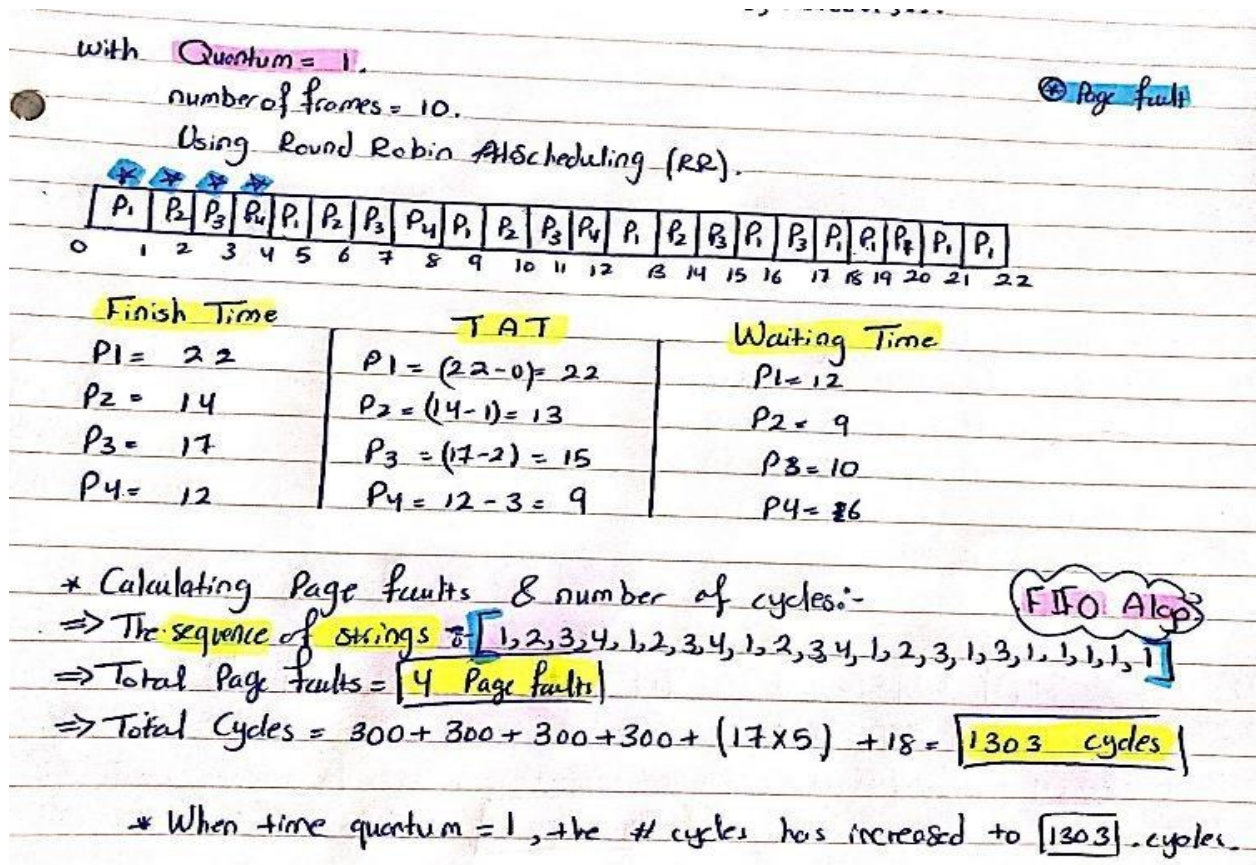 with Quantum = 1.
number of frames = 10.
⊛ Page fault
Using Round Robin Scheduling (RR).
* * * *
P1 P2 P3 P4 P1 P2 P3 P4 P1 P2 P3 P4 P1 P2 P3 P1 P3 P1 P1 P1 P1 P1
0 1 2 3 4 5 6 7 8 9 10 11 12 13 14 15 16 17 18 19 20 21 22
Finish Time TAT Waiting Time
P1 = 22 P1 = (22-0) = 22 P1 = 12
P2 = 14 P2 = (14-1) = 13 P2 = 9
P3 = 17 P3 = (17-2) = 15 P3 = 10
P4 = 12 P4 = 12 - 3 = 9 P4 = 6
* Calculating Page faults & number of cycles:-
FIFO Algo
⇒ The sequence of strings :- [1,2,3,4,1,2,3,4,1,2,3,4,1,2,3,1,3,1,1,1,1,1]
⇒ Total Page faults = 4 Page faults
⇒ Total Cycles = 300 + 300 + 300 + 300 + (17x5) + 18 = 1303 cycles
* When time quantum = 1, the # cycles has increased to 1303 .cycles.